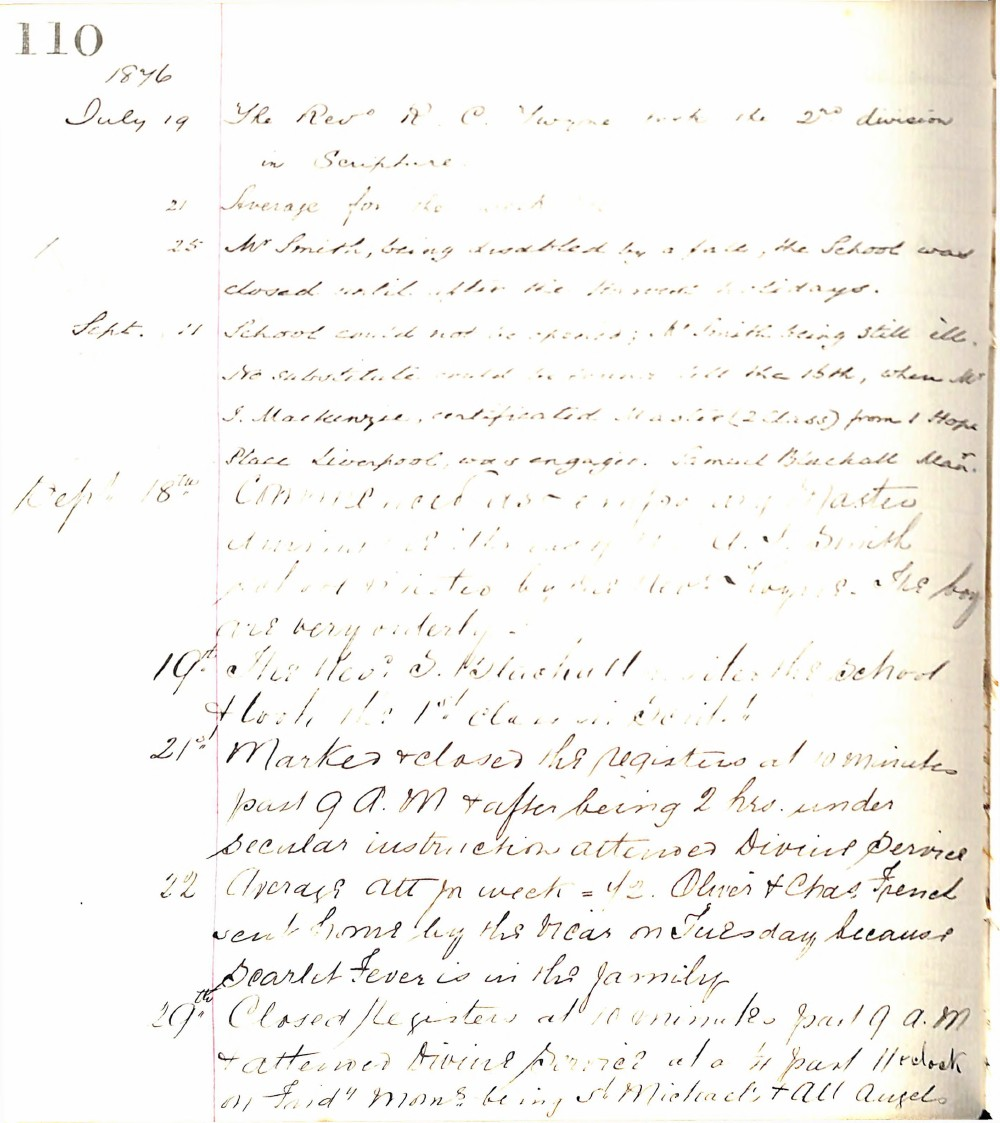 110
1876
July 19 The Revd R. C. Twyne took the 2nd division
in Scripture.
21 Average for the week
25 Mr Smith, being disabled by a fall, the School was
closed until after the Harvest holidays.
Sept. 11 School could not be opened; Mr Smith being still ill.
No substitute could be found till the 18th, when Mr
J. Mackenzie, certificated Master (2 Class) from 1 Hope
Place Liverpool, was engaged. Samuel Blackall Man.
Sept 18th Commenced as temporary Master
A. J. Smith
by the Revd Twyne. The boys
are very orderly.
19th The Revd S. Blackall visited the School
& took the 1st Class in
21st Marked & closed the registers at 10 minutes
past 9 A.M & after being 2 hrs. under
secular instruction attended Divine Service
22 Average att pr week = 42. Oliver & Chas French
sent home by the Vicar on Tuesday because
Scarlet Fever is in the family
29th Closed registers at 10 minutes past 9 A.M
& attended Divine Service at a ¼ past 11 o'clock
on Frid'y morng being St Michael's & All Angels